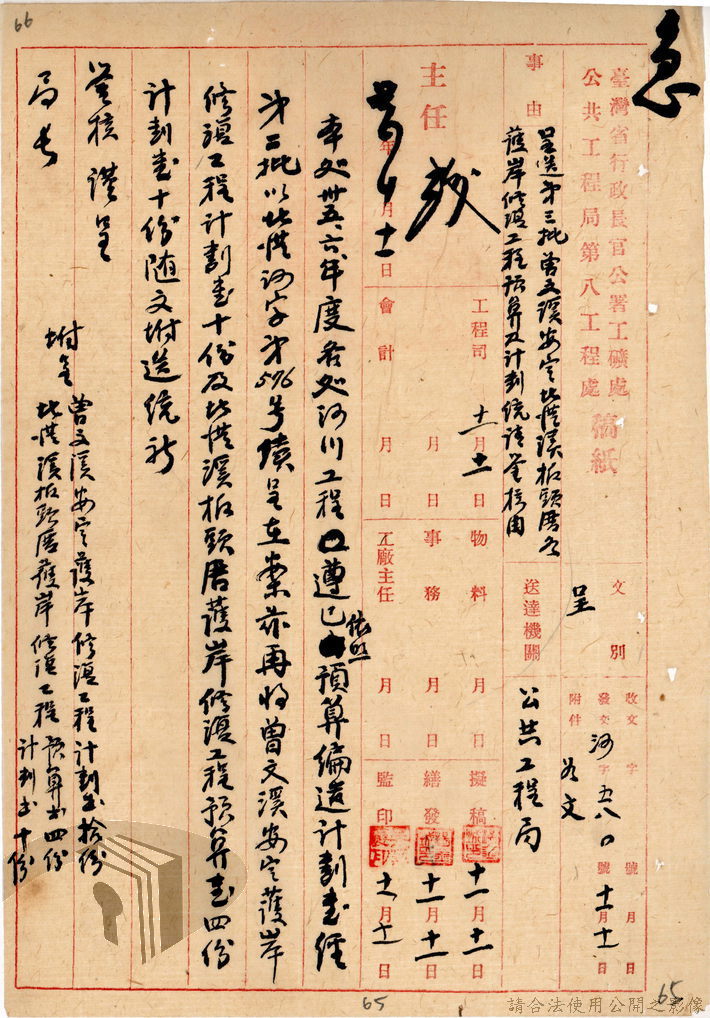 急
臺灣省行政長官公署工礦處
公共工程局第八工程處 稿紙
事由
呈送第三批曾文溪安定北港溪板頭厝各
護岸修復工程預算及計劃統請鑒核由
文別
呈
送達機關
公共工程局
收文 字 號 月 日
發文 河字五八〇號 十一月十一日
附件 如文
主任
年 月十一日
工程司 十一月十一日
會計 月 日
事務 月 日
物料 月 日
工廠主任 月 日
擬稿 十一月十一日
繕發 十一月十一日
監印 十一月十一日
本處卅五、六年度各處河川工程遵已依照預算編造計劃書經
第二批以北港河字第576號續呈在案亦再將曾文溪安定護岸
修復工程計劃書十份及北港溪板頭厝護岸修復工程預算書四份
計劃書十份隨文坿送統祈
鑒核 謹呈
局長
坿呈 曾文溪安定護岸修復工程計劃書拾份
北港溪板頭厝護岸修復工程 預算書四份
計劃書十份
66
65
65
請合法使用公開之影像